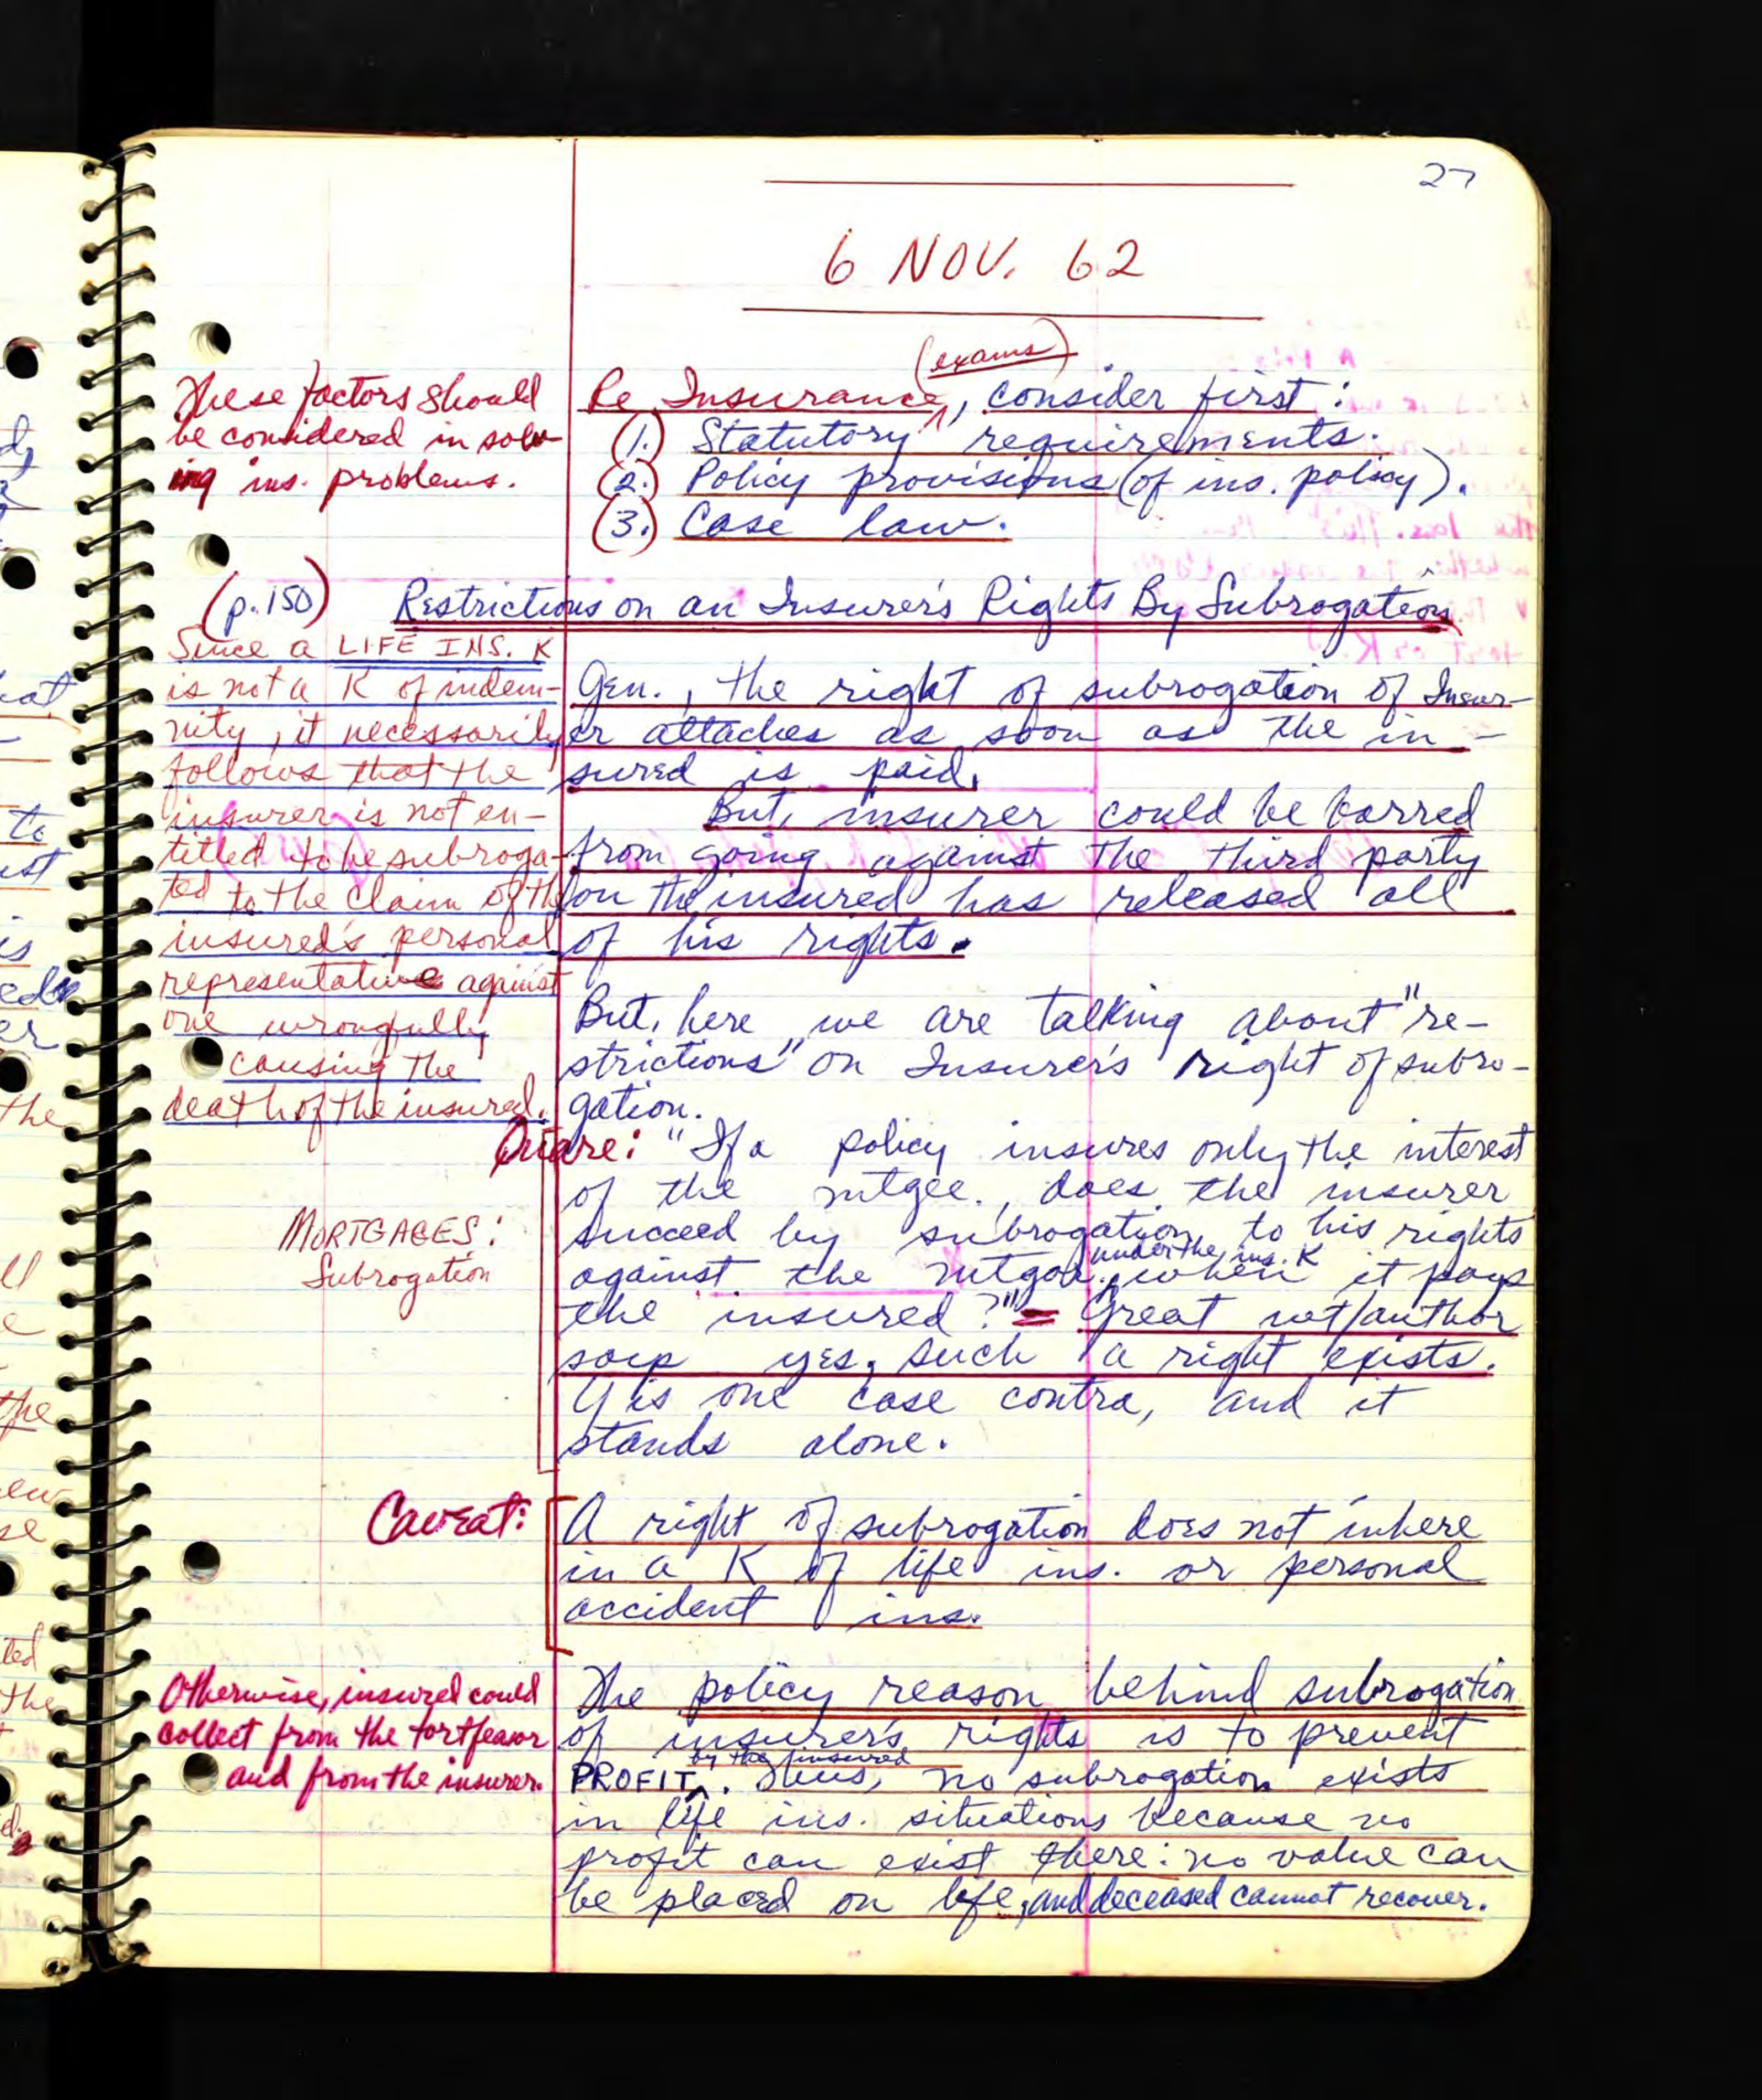 27
6 NOV. 62
(exams)
Re Insurance, consider first:
(1.) Statutory requirements.
(2.) Policy provisions (of ins. policy).
(3.) Case law.
These factors should
be considered in solv-
ing ins. problems.
(p.150) Restrictions on an Insurer's Rights By Subrogation
Since a LIFE INS. K
is not a K of indem-
nity, it necessarily
follows that the
insurer is not en-
titled to be subroga-
ted to the claim of the
insured's personal
representative against
one wrongfully
causing the
death of the insured.
Gen., the right of subrogation of Insur-
er attaches as soon as the in-
sured is paid.
But, insurer could be barred
from going against the third party
on the insured has released all
of his rights.
But, here we are talking about "re-
strictions" on Insurer's right of subro-
gation.
Quare: "If a policy insures only the interest
of the mtgee., does the insurer
succeed by subrogation to his rights
under the ins. K
against the mtgor., when it pays
the insured?" = Great wt/author
says yes, such a right exists.
MORTGAGES:
Subrogation
is one case contra, and it
stands alone.
Caveat: A right of subrogation does not inhere
in a K of life ins. or personal
accident ins.
Otherwise, insured could
collect from the tortfeasor
and from the insurer.
The policy reason behind subrogation
of insurer's rights is to prevent
by the insured
PROFIT. Thus, no subrogation exists
in life ins. situations because no
profit can exist there: no value can
be placed on life, and deceased cannot recover.